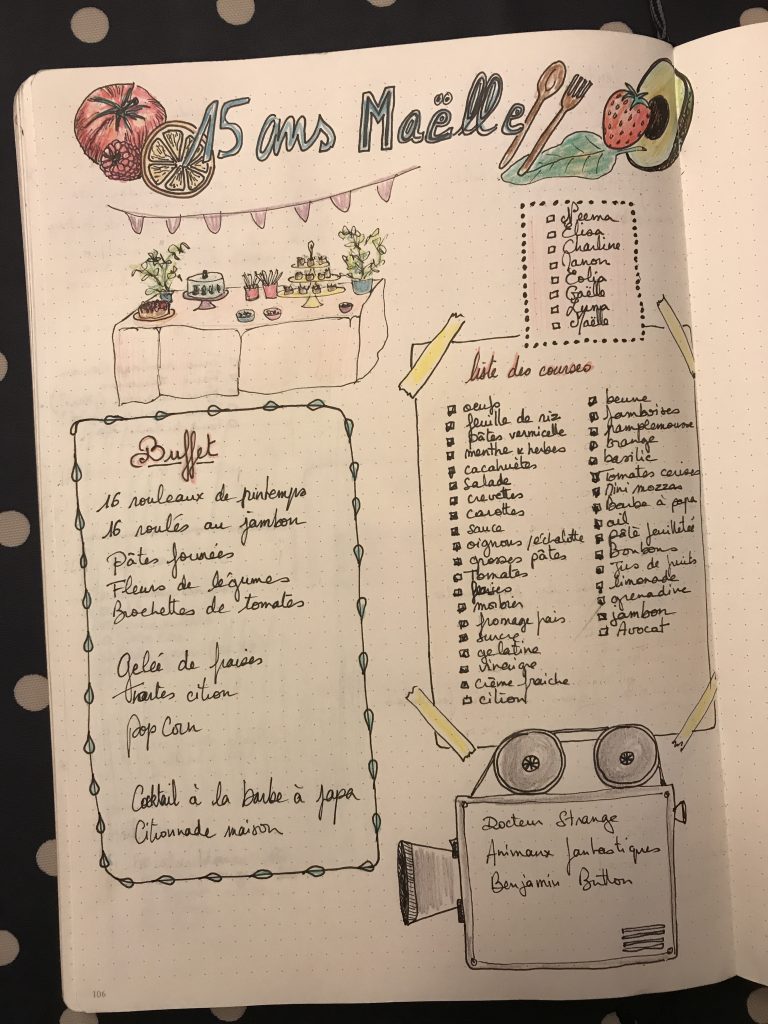 15 ans Maëlle
Neema
Elisa
Charline
Manon
Eolia
Gaëlle
Luna
Maëlle
Buffet
16 rouleaux de printemps
16 roulés au jambon
Pâtes fourrées
Fleurs de légumes
Brochettes de tomates
Gelée de fraises
Tartes citron
Pop Corn
Cocktail à la barbe à papa
Citronnade maison
liste des courses
oeufs
feuille de riz
pâtes vermicelle
menthe x herbes
cacahuètes
salade
crevettes
carottes
sauce
oignons / échalotte
grosses pâtes
Tomates
fraises
morbier
fromage frais
sucre
gelatine
vinaigre
crème fraiche
citron
beurre
framboises
pamplemousse
orange
basilic
Tomates cerises
Mini mozzas
barbe à papa
ail
pâte feuilletée
Bonbons
Jus de fruits
limonade
grenadine
jambon
Avocat
Docteur Strange
Animaux fantastiques
Benjamin Button
106